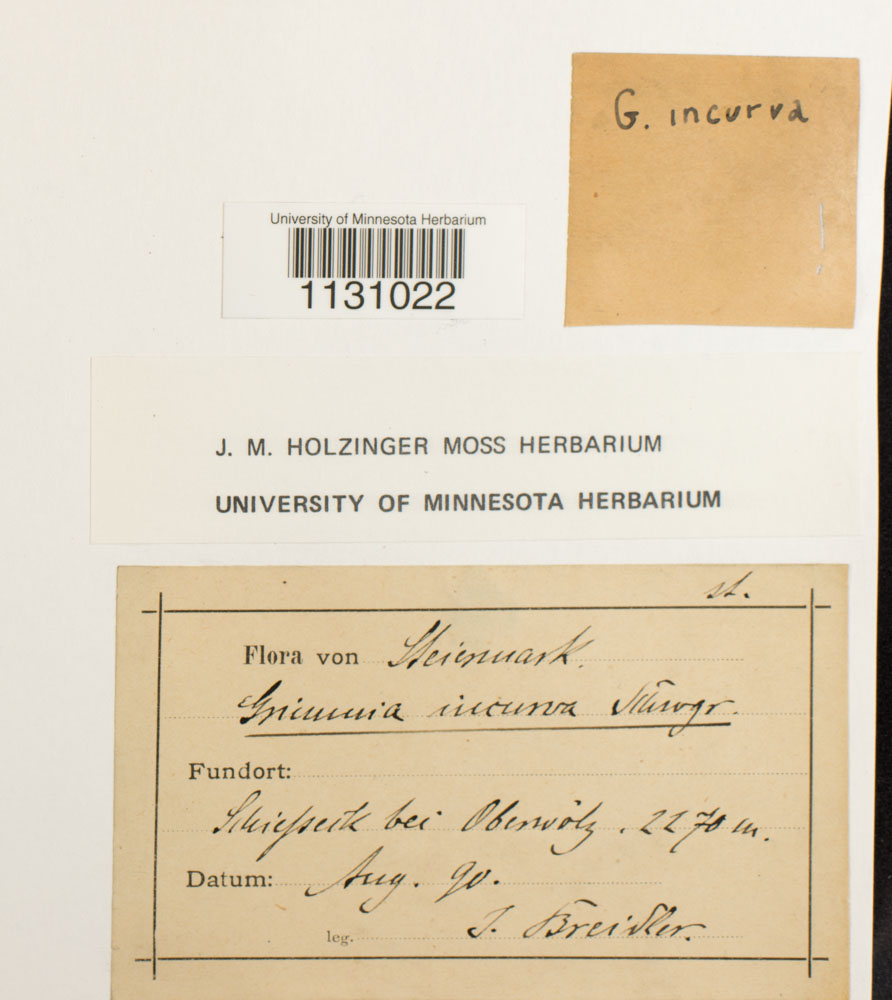 G. incurva
University of Minnesota Herbarium
1131022
J. M. HOLZINGER MOSS HERBARIUM
UNIVERSITY OF MINNESOTA HERBARIUM
st.
Flora von Steiermark.
Grimmia incurva Schwgr.
Fundort:
Schießeck bei Oberwölz. 2270 m.
Datum: Aug. 90.
leg. J. Breidler.